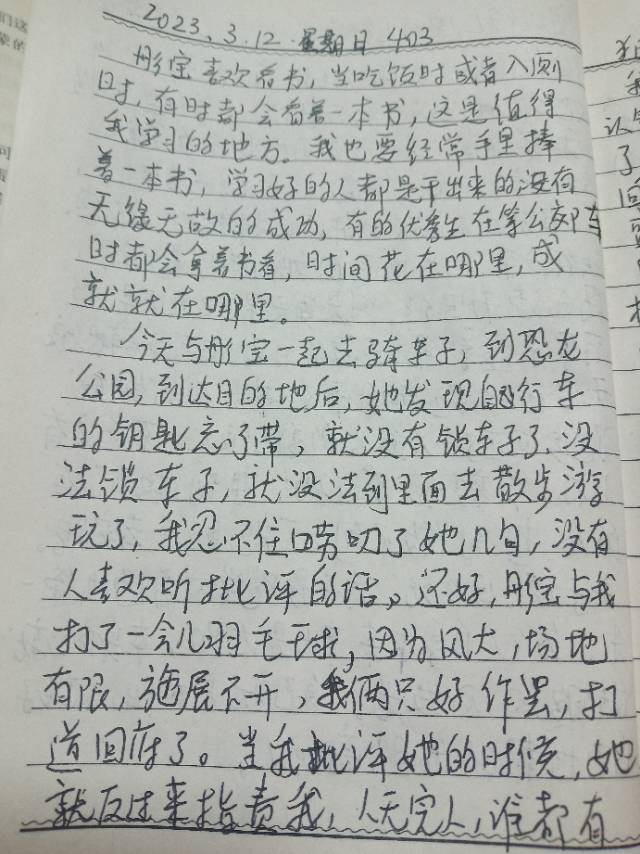 2023.3.12.星期日 403
彤宝喜欢看书,当吃饭时或者入厕
时,有时都会看着一本书,这是值得
我学习的地方。我也要经常手里捧
着一本书,学习好的人都是干出来的没有
无缘无故的成功,有的优秀生在等公交车
时都会拿着书看,时间花在哪里,成
就就在哪里。
今天与彤宝一起去骑车子,到恐龙
公园,到达目的地后,她发现自行车
的钥匙忘了带,就没有锁车子了.没
法锁车子,就没法到里面去散步游
玩了,我忍不住唠叨了她几句,没有
人喜欢听批评的话。还好,彤宝与我
打了一会儿羽毛球,因为风大,场地
有限,施展不开,我俩只好作罢,打
道回府了。当我批评她的时候,她
就反过来指责我,人无完人,谁都有